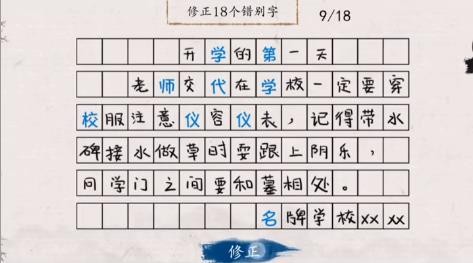 修正18个错别字
9/18
开学的第一天
老师交代在学校一定要穿
校服注意仪容仪表，记得带水
碑接水做草时耍跟上阴乐，
同学门之间要和墓相处。
名牌学校xx xx
修正